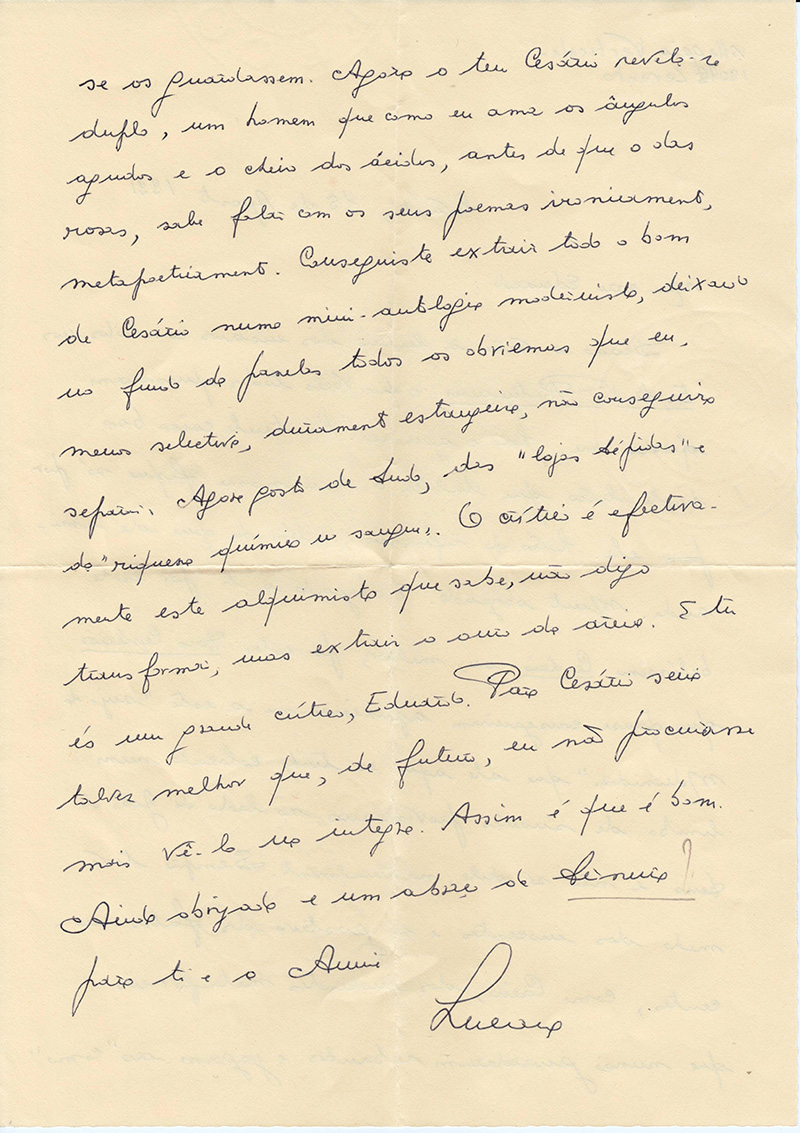 se os guardassem. Agora o teu Cesário revela-se
duplo, um homem que como eu ama os ângulos
agudos e o cheiro dos ácidos, antes de que o das
rosas, sabe falar com os seus poemas ironicament,
metapoeticament. Conseguiste extrair todo o bom
de Cesário numa mini-antologia modernista, deixando
no fundo da panela todos os obriemas que eu,
menos selectiva, duramente estrangeira, não conseguira
separar. Agora gosto de tudo, das "lojas tépidas" e
da "riqueza química no sangue". O crítico é efectiva-
mente este alquimista que sabe, não digo
transformar, mas extrair o ouro da areia. E tu
és um grande crítico, Eduardo. Para Cesário seria
talvez melhor que, de futuro, eu não procurasse
mais vê-lo na integra. Assim é que é bom.
Ainda obrigada e um abraço de
para ti e a Annie
Luciana